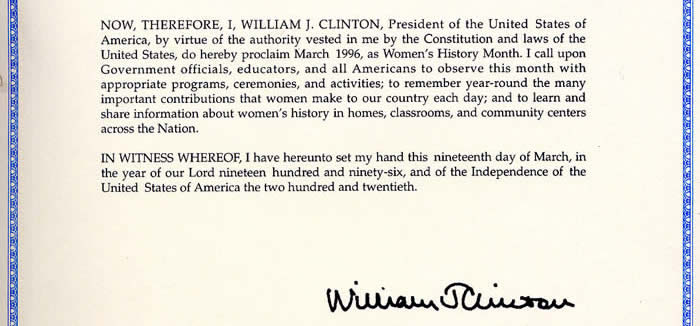 NOW, THEREFORE, I, WILLIAM J. CLINTON, President of the United States of
America, by virtue of the authority vested in me by the Constitution and laws of the
United States, do hereby proclaim March 1996, as Women's History Month. I call upon
Government officials, educators, and all Americans to observe this month with
appropriate programs, ceremonies, and activities; to remember year-round the many
important contributions that women make to our country each day; and to learn and
share information about women's history in homes, classrooms, and community centers
across the Nation.
IN WITNESS WHEREOF, I have hereunto set my hand this nineteenth day of March, in
the year of our Lord nineteen hundred and ninety-six, and of the Independence of the
United States of America the two hundred and twentieth.
William J Clinton